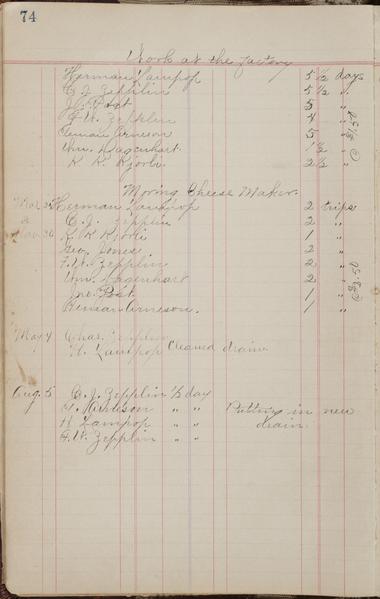 74
Work at the factory
Herman Lampop 5 1/2 days
C J Zepplin 5 1/2 "
Jno. Post 5 "
F. W. Zepplin 4 "
Heman Arneson 5 "
Wm. Hagenhart 1 1/2 "
K. K. Kjorli 2 1/2 "
Moving Cheese Maker.
Herman Lampop 2 trips
C. J. Zepplin 2 "
K. K Kjorli 1 "
Geo. Jones 2 "
F. W. Zepplin 2 "
Wm. Hagenhart 2 "
Jno. Post 1 "
Heman Arneson. 1 "
@ 3.50
May 4 Chas. Zepplin
H. Lampop Cleaned drain
Aug. 5 C. J. Zepplin 1/2 day
H. Arneson " " Putting in new
H Lampop " " drain.
F. W. Zepplin " "